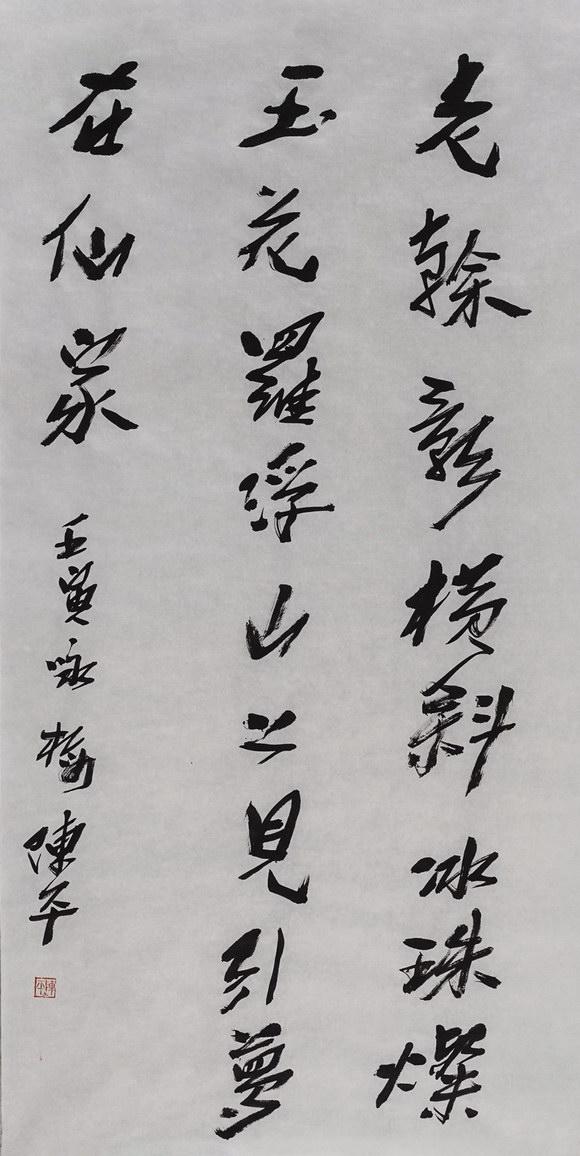 老榦橫斜冰珠燦
玉花羅浮山上見引夢
在仙家
壬寅咏梅陳平